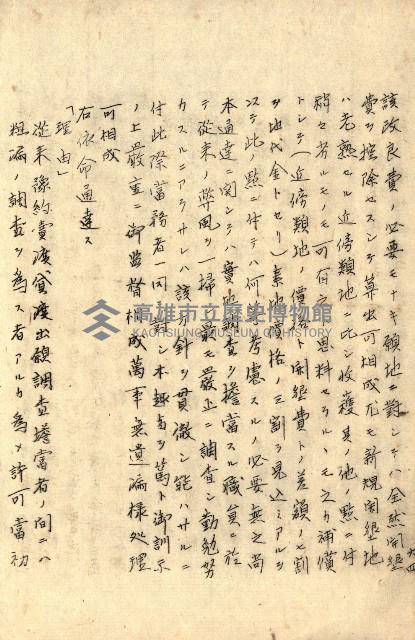 該改良費ノ必要モナキ願地ニ對シテハ全然開墾
費ヲ控除セスシテ算出可相成尤モ新規開墾地
ハ老熟セル近傍類地ニ比シ收獲其ノ他ノ點ニ付
相劣ルモノモ可有之思料セラルヽモ之カ補償
トシテ(近傍類地ノ價格ト開墾費トノ差額ノ七割
ヲ地代金トセリ)素地價格ノ三割ヲ見込ミアルヲ
以テ此ノ點ニ付テハ何等考慮スルノ必要無之尚
本通達ニ關シテハ實地調査ヲ擔當スル職員ニ於
テ從來ノ弊風ヲ一掃シ最モ嚴正ニ調査シ勤勉努
力スルニアラサレハ該方針ヲ貫徹シ能ハサルニ
付此際當務者一同ニ對シ本趣旨ヲ篤ト御訓示
ノ上嚴重ニ御監督相成萬事無遺漏樣処理
可相成
右依命通達ス
「理由」
從來豫約賣渡貸渡出願調査擔當者ノ間ニハ
粗漏ノ調査ヲ為ス者アルカ為メ許可當初
高雄市立歷史博物館
KAOHSIUNG MUSEUM OF HISTORY